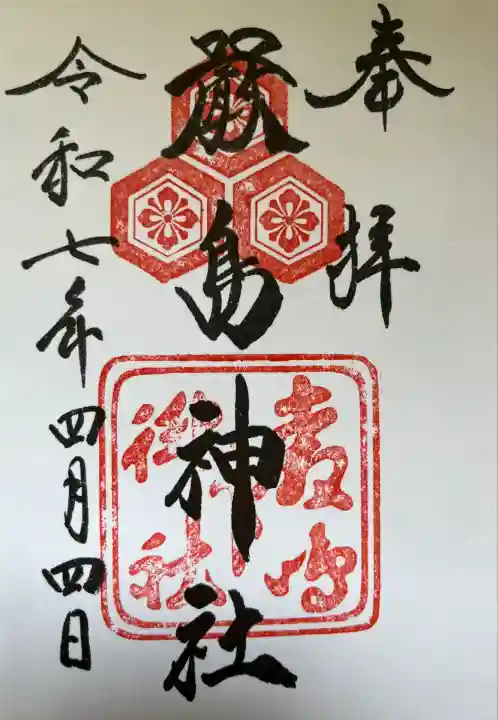 奉拝
嚴島神社
令和七年四月四日